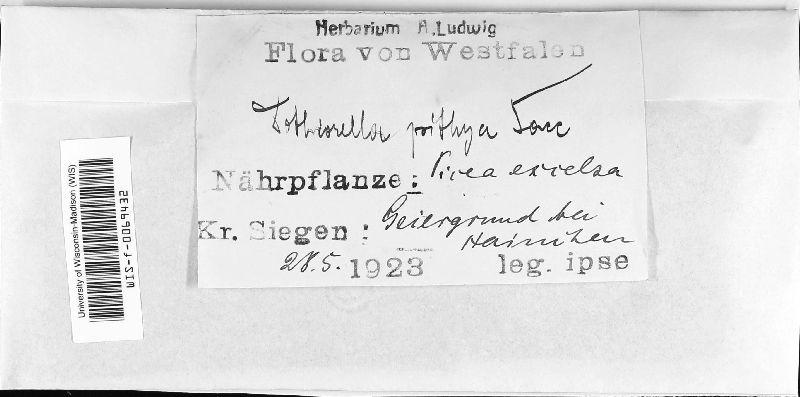 Herbarium A.Ludwig
Flora von Westfalen
Dothiorella pithya Sacc
Nährpflanze: Picea excelsa
Kr. Siegen: Geiergrund bei
Hainchen
28.5. 1923 leg. ipse
University of Wisconsin-Madison (WIS)